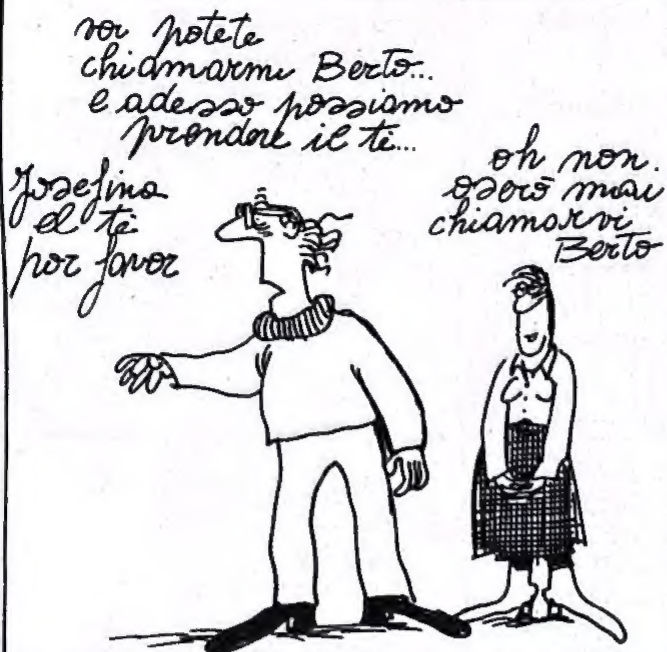 voi potete
chiamarmi Berto...
e adesso possiamo
prendere il tè...
Josefina
el tè
por favor
oh non
oserò mai
chiamarvi
Berto